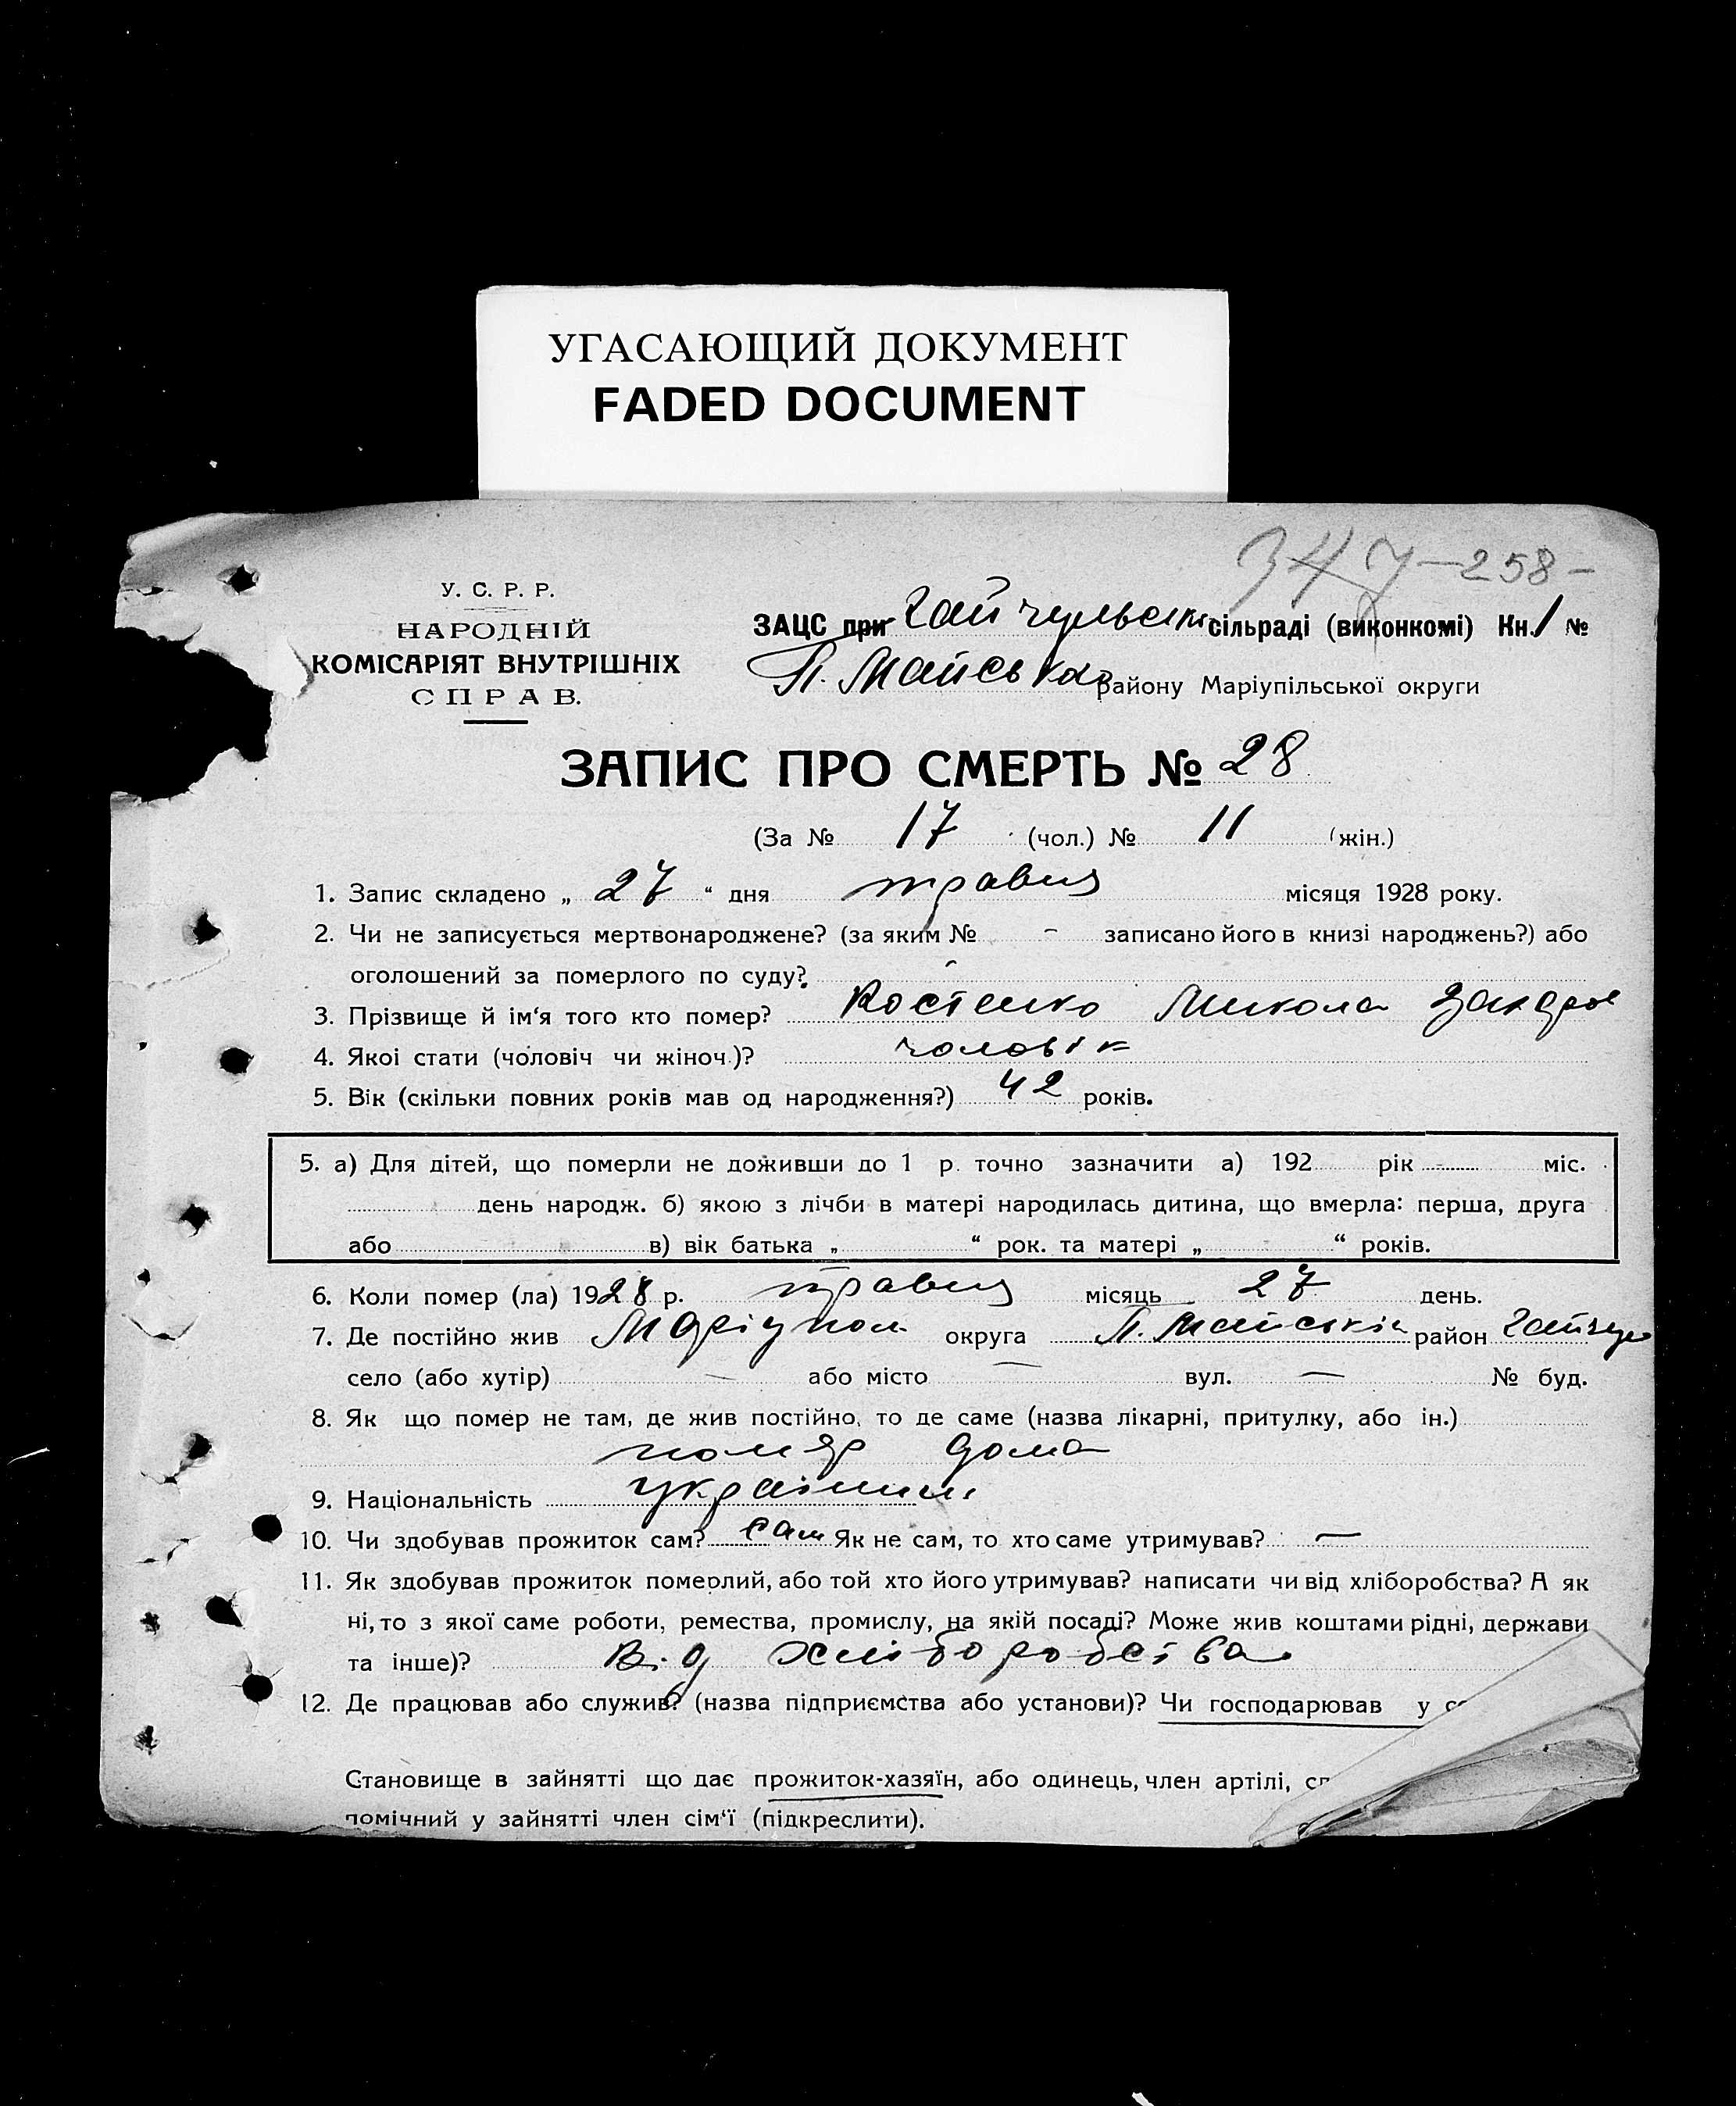 УГАСАЮЩИЙ ДОКУМЕНТ
FADED DOCUMENT
347-258-
У. С. Р. Р.
НАРОДНІЙ
КОМІСАРІЯТ ВНУТРІШНІХ
СПРАВ.
ЗАЦС при Гайчульськ сільраді (виконкомі) Кн. 1 №
П. Майсько району Маріупільської округи
ЗАПИС ПРО СМЕРТЬ № 28
(За № 17 (чол.) № 11 (жін.)
1. Запис складено „ 27 “ дня травня місяця 1928 року.
2. Чи не записується мертвонароджене? (за яким № - записано його в книзі народжень?) або
оголошений за померлого по суду? -
3. Прізвище й ім‘я того кто помер? Костенко Микола
4. Якоі стати (чоловіч чи жіноч.)? чоловік
5. Вік (скільки повних років мав од народження?) 42 років.
5. а) Для дітей, що померли не доживши до 1 р. точно зазначити а) 192 рік міс.
день народж. б) якою з лічби в матері народилась дитина, що вмерла: перша, друга
або в) вік батька „ “ рок. та матері „ “ років.
6. Коли помер (ла) 1928 р. травня місяць 27 день.
7. Де постійно жив Маріупол округа П. Майській район Гайчул
село (або хутір) — або місто — вул. — № буд.
8. Як що помер не там, де жив постійно, то де саме (назва лікарні, притулку, або ін.)
помер дома
9. Національність українец
10. Чи здобував прожиток сам? сам Як не сам, то хто саме утримував? —
11. Як здобував прожиток померлий, або той хто його утримував? написати чи від хліборобства? А як
ні, то з якої саме роботи, ремества, промислу, на якій посаді? Може жив коштами рідні, держави
та інше)? Від хліборобства
12. Де працював або служив? (назва підприємства або установи)? Чи господарював у
Становище в зайнятті що дає прожиток-хазяїн, або одинець, член артілі,
помічний у зайнятті член сім‘ї (підкреслити).